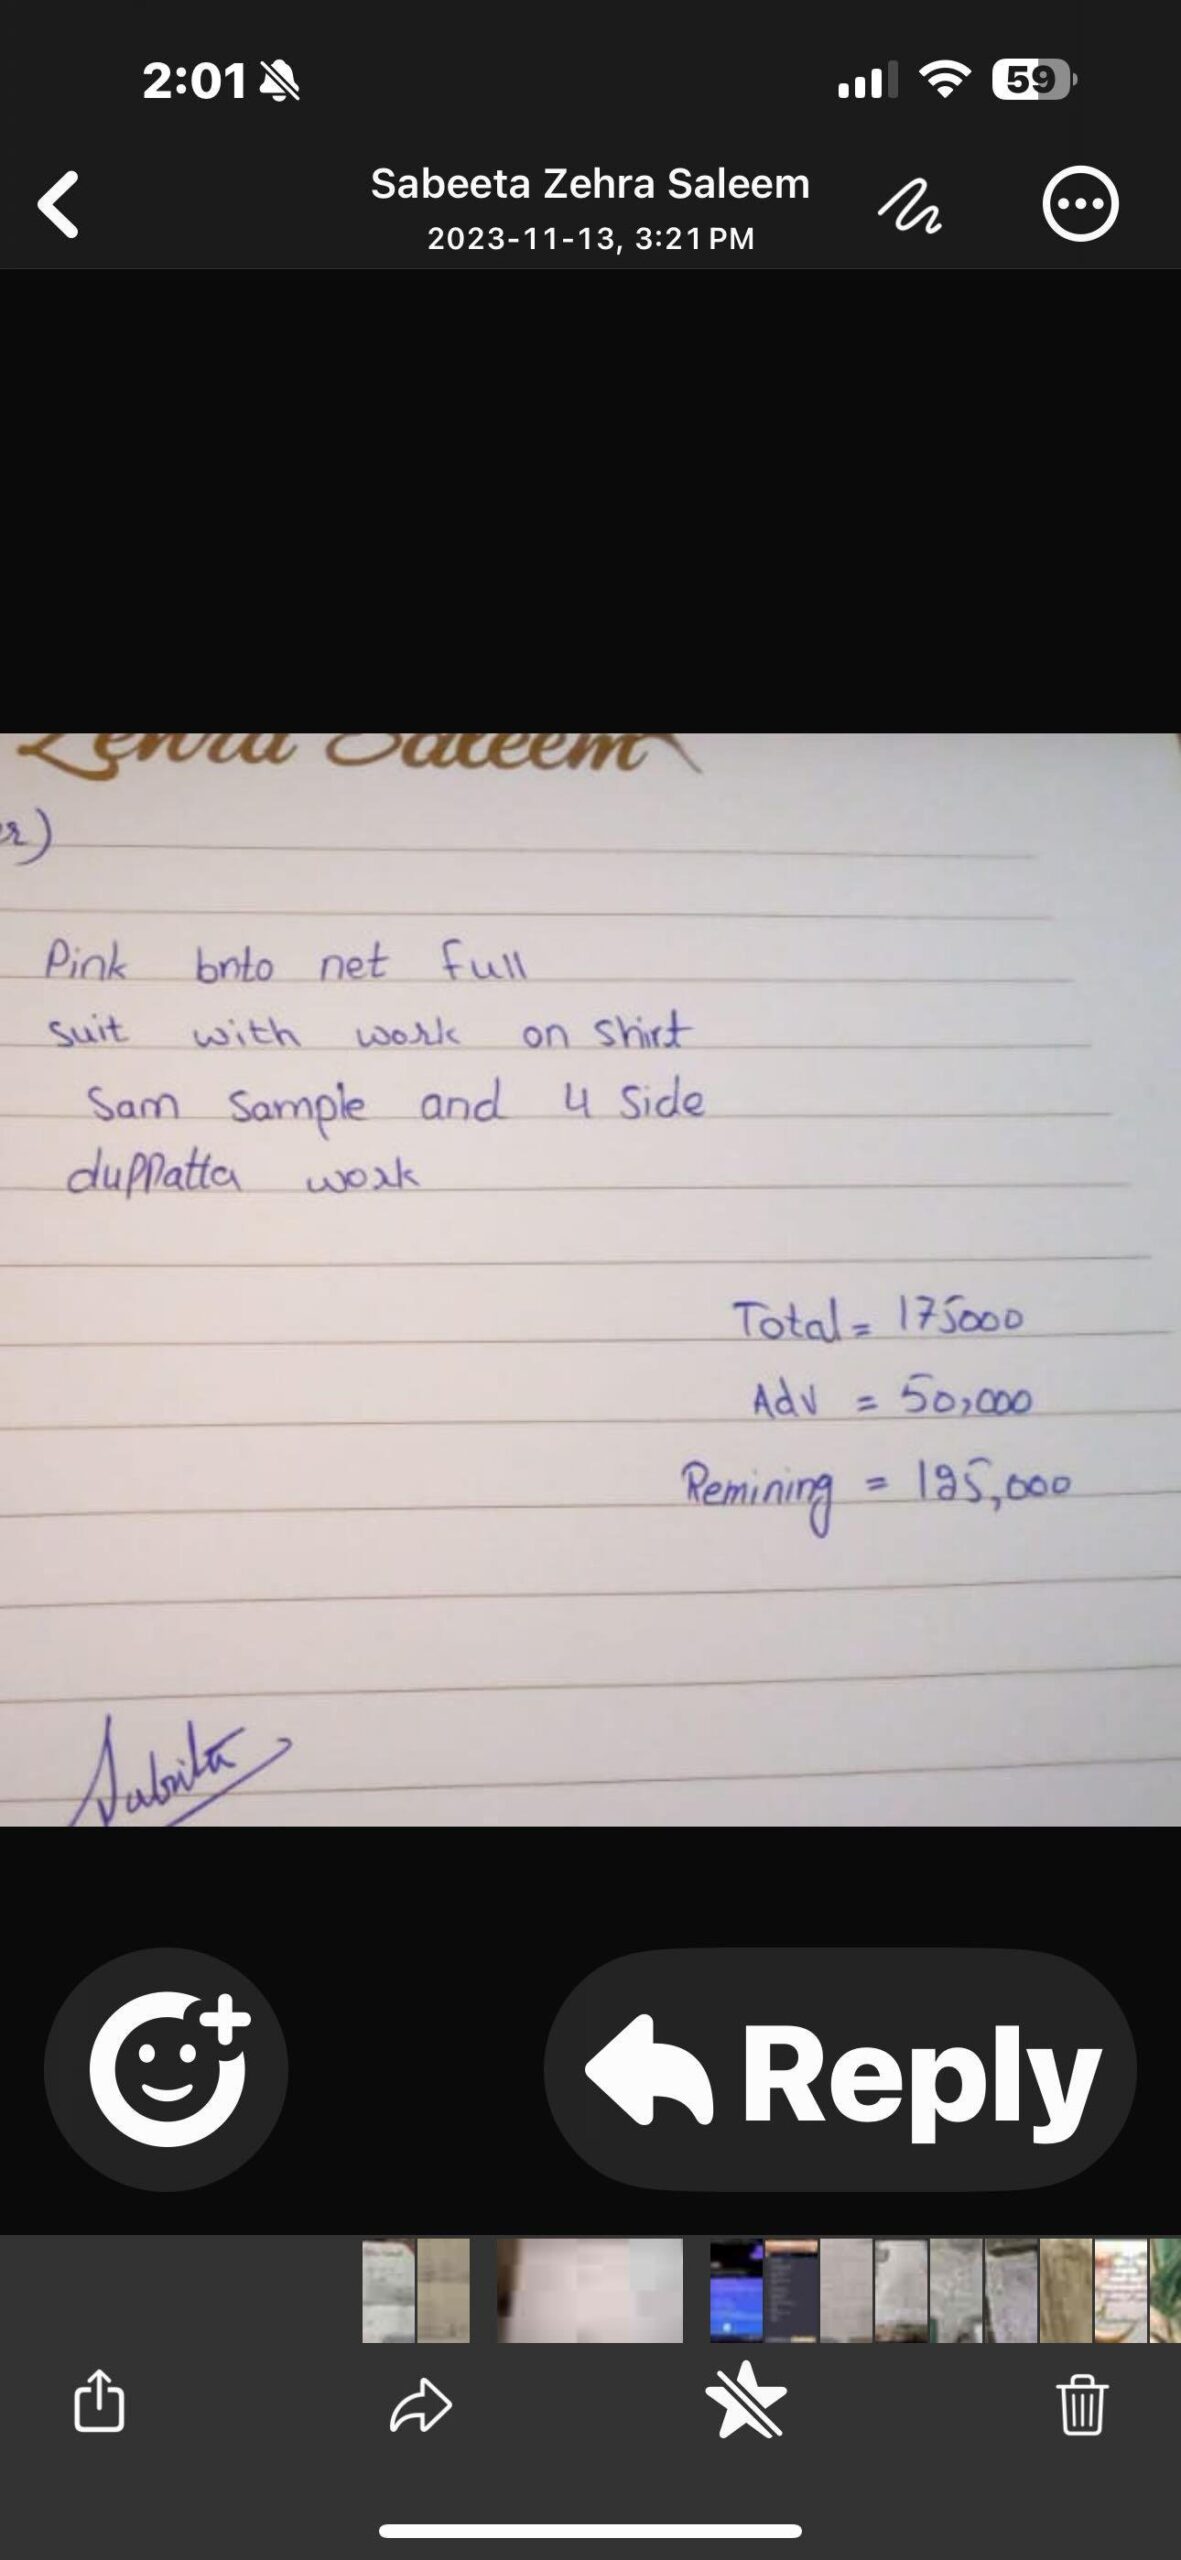 2:01
59
Sabeeta Zehra Saleem
2023-11-13, 3:21 PM
Zehra Saleem
Pink bnto net full
suit with work on shirt
Sam Sample and 4 side
duppatta work
Total = 175000
Adv = 50,000
Remining = 125,000
Reply